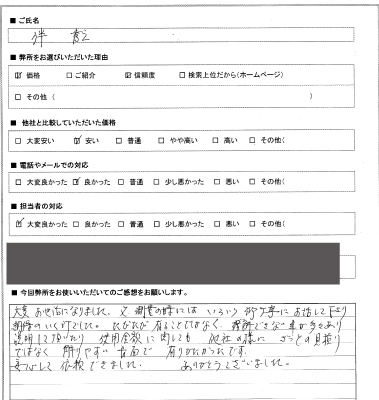 ■ ご氏名
■ 弊所をお選びいただいた理由
☑ 価格 □ ご紹介 ☑ 信頼度 □ 検索上位だから(ホームページ)
□ その他 ( )
■ 他社と比較していただいた価格
□ 大変安い ☑ 安い □ 普通 □ やや高い □ 高い □ その他(
■ 電話やメールでの対応
□ 大変良かった ☑ 良かった □ 普通 □ 少し悪かった □ 悪い □ その他(
■ 担当者の対応
☑ 大変良かった □ 良かった □ 普通 □ 少し悪かった □ 悪い □ その他(
■ 今回弊所をお使いいただいてのご感想をお願いします。
大変お世話になりました。又、の時には いろいろ 御丁寧にお話して下さり
のいくでした。ることではなく、できない事が多くあり
説明して頂いたり 費用金額に関しても 他社の様に ざっとの見積り
ではなく 解りやすい 有りがたかったです。
安心して 依頼できました。 ありがとうございました。